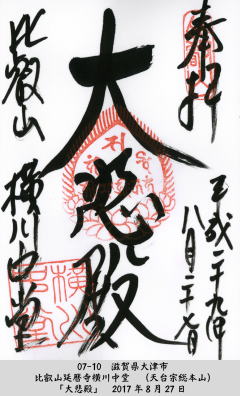 奉拝
平成二十九年
八月二十七日
大悲殿
比叡山 横川中堂
07-10 滋賀県大津市
比叡山延暦寺横川中堂 (天台宗総本山)
「大悲殿」 2017年8月27日